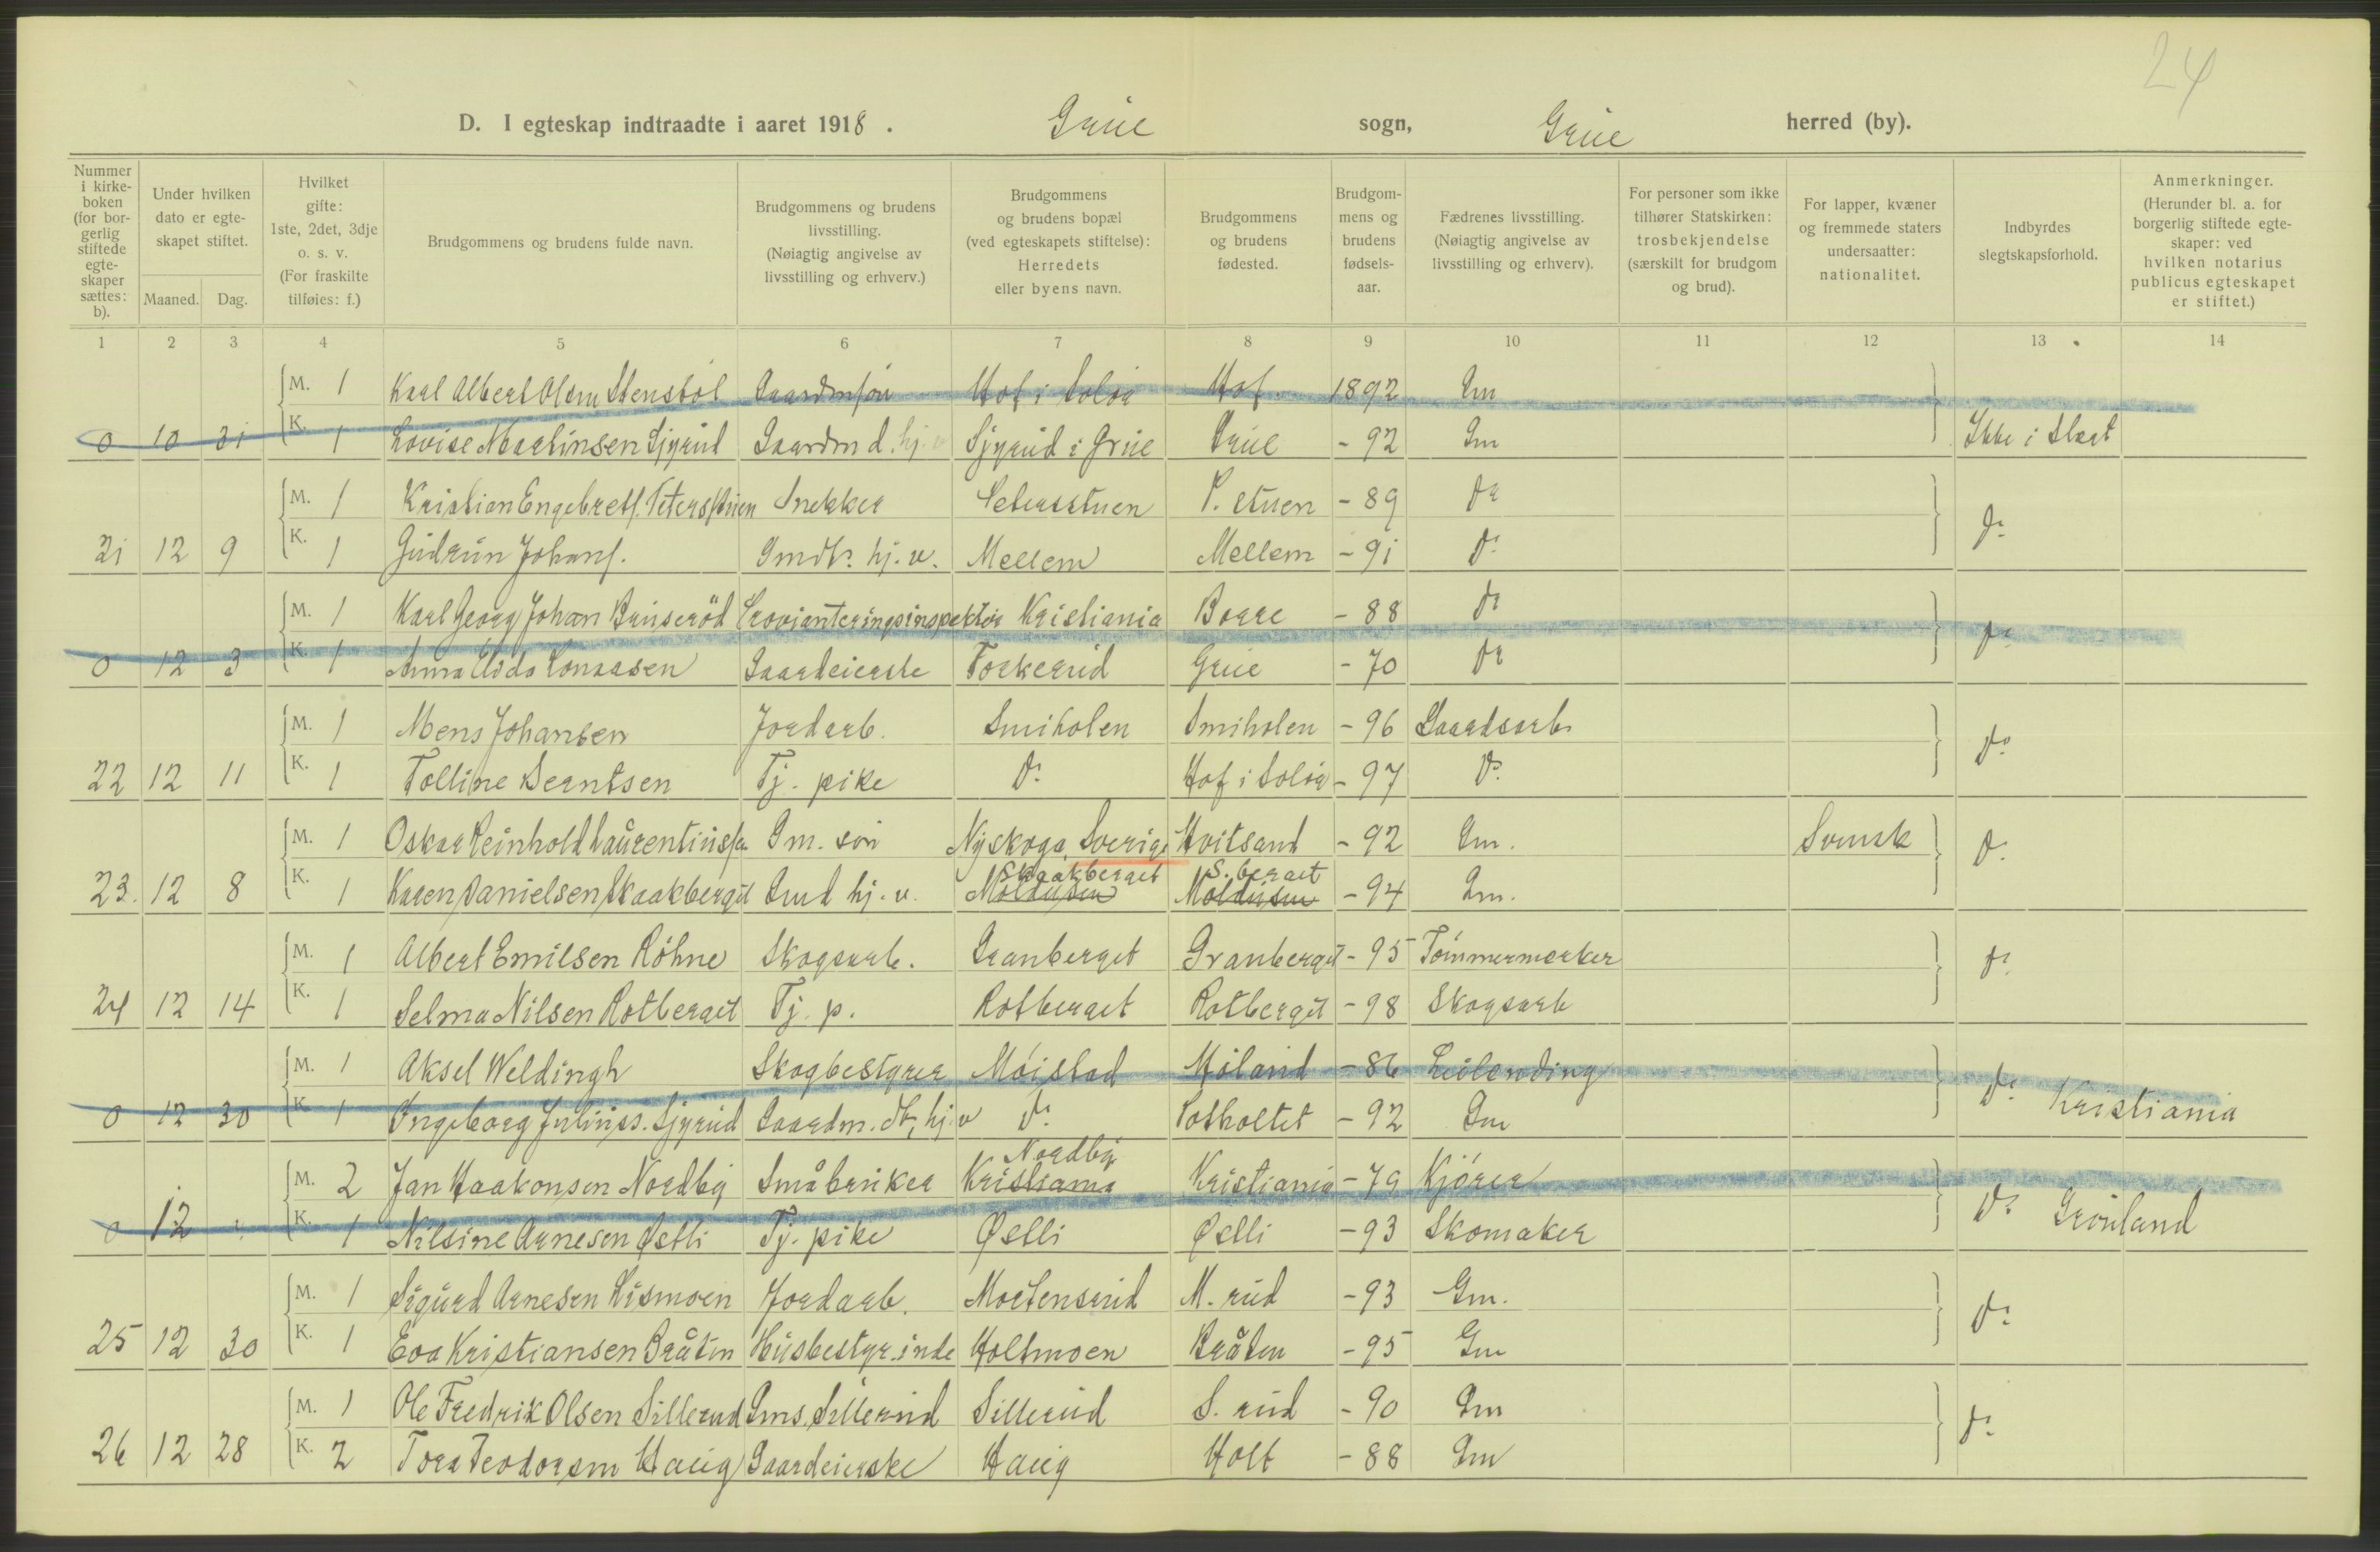 24
D. I egteskap indtraadte i aaret 1918. Grue sogn, Grue herred (by).
Nummer i kirkeboken (for borgerlig stiftede egteskaper sættes: b).
Under hvilken dato er egteskapet stiftet.
Maaned. Dag.
Hvilket gifte: 1ste, 2det, 3dje o. s. v. (For fraskilte tilføies: f.)
Brudgommens og brudens fulde navn.
Brudgommens og brudens livsstilling. (Nøiagtig angivelse av livsstilling og erhverv.)
Brudgommens og brudens bopæl (ved egteskapets stiftelse): Herredets eller byens navn.
Brudgommens og brudens fødested.
Brudgommens og brudens fødselsaar.
Fædrenes livsstilling. (Nøiagtig angivelse av livsstilling og erhverv).
For personer som ikke tilhører Statskirken: trosbekjendelse (særskilt for brudgom og brud).
For lapper, kvæner og fremmede staters undersaatter: nationalitet.
Indbyrdes slegtskapsforhold.
Anmerkninger. (Herunder bl. a. for borgerlig stiftede egteskaper: ved hvilken notarius publicus egteskapet er stiftet.)
1 2 3 4 5 6 7 8 9 10 11 12 13 14
M. 1 Karl Albert Olsen Stensbøl Gaardmsøn Hof i Solør Hof 1892 Gm
0 10 31 K. 1 Lovise Martinsen Sjyrud Gaardm d. hj. v Sjyrud i Grue Grue - 92 Gm Ikke i Slegt
M. 1 Kristian Engebrets. Petersstuen Snekker Petersstuen P. stuen - 89 do
21 12 9 K. 1 Gudrun Johans. Gmdtr. hj. v. Mellem Mellem - 91 do do
M. 1 Karl Georg Johan Bruserød Provianteringsinspektør Kristiania Borre - 88 do
0 12 3 K. 1 Anna Gaardeierske Torkerud Grue - 70 do do
M. 1 Mens Johansen Jordarb. Smiholen Smiholen - 96 Gaardsarb.
22 12 11 K. 1 Tolline Berntsen Tj. pike do Hof i Solør - 97 do do
M. 1 Oskar Reinhold Laurentiuss. Gm. søn Nyskoga, Sverige Hvitsand - 92 Gm. Svensk
Skaakberget S. berget
23. 12 8 K. 1 Karen Danielsen Skaakberget Gmd hj. v. Moldusen Moldusen - 94 Gm. do
M. 1 Albert Emilsen Röhne Skogsarb. Granberget Granberget - 95 Tømmermerker
24 12 14 K. 1 Selma Nilsen Rotberget Tj. p. Rotberget Rotberget - 98 Skogsarb do
M. 1 Aksel Weldingh Skogbestyrer Møistad Høland - 86 Leilending
0 12 30 K. 1 Ingeborg Juliuss. Sjyrud Gaardm. dtr, hj. v do Potholtet - 92 Gm do Kristiania
Nordby
M. 2 Jan Haakonsen Nordby Småbruker Kristiania Kristiania - 79 Kjører
0 12 K. 1 Nilsine Arnesen Østli Tj. pike Østli Østli - 93 Skomaker do Grønland
M. 1 Sigurd Arnesen Rismoen Jordarb. Mortensrud M. rud - 93 Gm.
25 12 30 K. 1 Eva Kristiansen Bråten Husbestyr.inde Holtmoen Bråten - 95 Gm do
M. 1 Ole Fredrik Olsen Sillerud Gms. Sillerud Sillerud S. rud - 90 Gm
26 12 28 K. 2 Tora Teodorsen Haug Gaardeierske Haug Holt - 88 Gm do